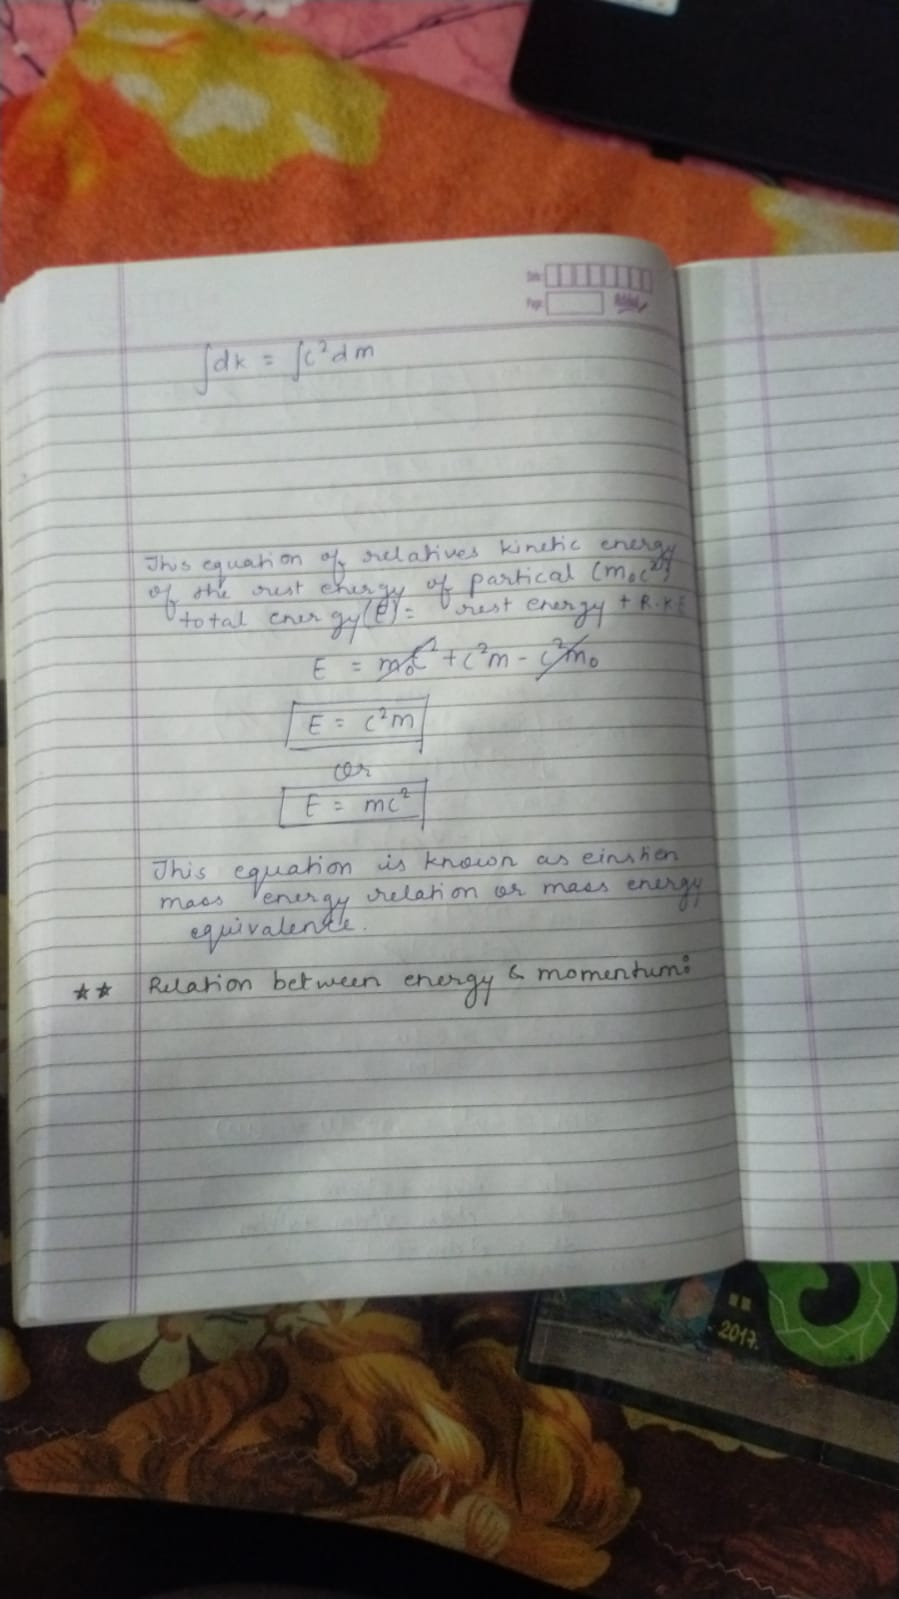 Date
Page
∫dk = ∫c²dm
This equation of relatives kinetic energy
of the rest energy of partical (m₀c²)
total energy(E) = rest energy + R.K.E
E = m₀c² + c²m - c²m₀
E = c²m
or
E = mc²
This equation is known as einstien
mass energy relation or mass energy
equivalence.
★★ Relation between energy & momentum:
2017.